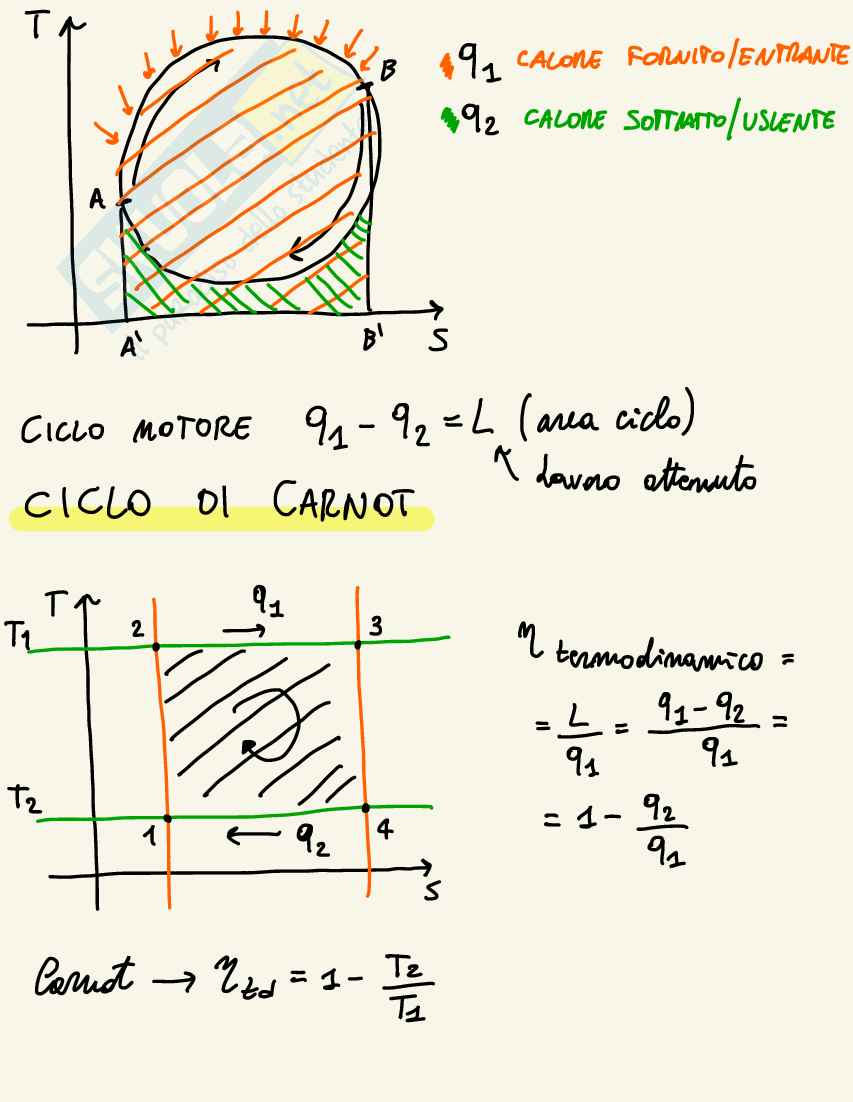 T
q1 CALORE FORNITO/ENTRANTE
q2 CALORE SOTTRATTO/USCENTE
B
A
A'
B'
S
CICLO MOTORE q1 - q2 = L (area ciclo)
lavoro ottenuto
CICLO DI CARNOT
T
q1
T1
2
3
η termodinamico =
= L/q1 = (q1 - q2)/q1 =
T2
1
q2
4
= 1 - q2/q1
S
Carnot → ηtd = 1 - T2/T1